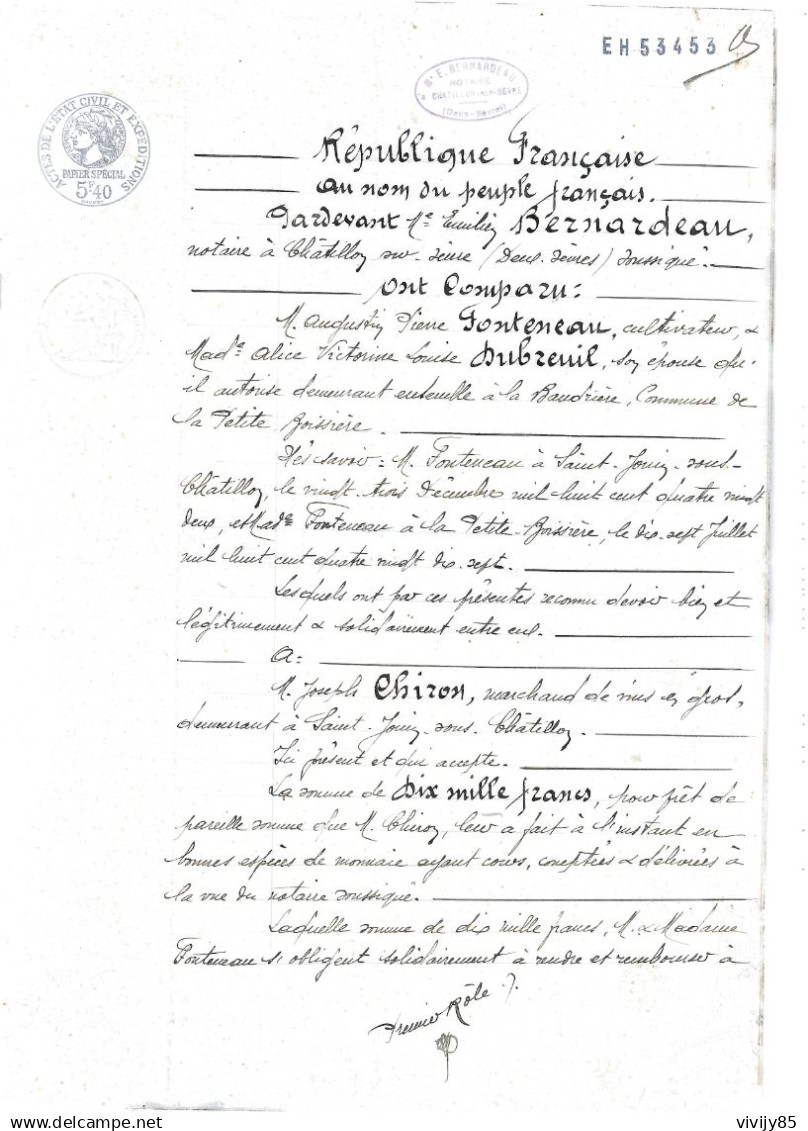 EH 53453
Me E. BERNARDEAU
NOTAIRE
CHATILLON-SUR-SEVRE
(Deux-Sèvres)
ACTES DE L'ETAT CIVIL ET EXPEDITIONS
PAPIER SPECIAL
5F40
République Française
Au nom du peuple français.
Pardevant Me Emilien Bernardeau,
notaire à Châtillon sur-Sèvre (Deux-Sèvres) soussigné.
Ont Comparu:
M. Augustin Pierre Fonteneau, cultivateur, &
Made Alice Victorine Louise Dubreuil, son épouse qu'
il autorise demeurant ensemble à la Baudrière, Commune de
la Petite Boissière.
Nés savoir: M. Fonteneau à Saint-Jouin-sous-
Châtillon, le vingt-trois Décembre mil huit cent quatre vingt
deux, et Made Fonteneau à la Petite-Boissière, le dix-sept Juillet
mil huit cent quatre vingt dix-sept.
Lesquels ont par ces présentes reconnu devoir bien et
légitimement & solidairement entre eux.
A:
M. Joseph Chiron, marchand de vins en gros,
demeurant à Saint-Jouin-sous-Châtillon.
Ici présent et qui accepte.
La somme de Dix mille francs, pour prêt de
pareille somme que M. Chiron, leur a fait à l'instant en
bonnes espèces de monnaie ayant cours, comptées & délivrées à
la vue du notaire soussigné.
Laquelle somme de dix mille francs, M. & Madame
Fonteneau s'obligent solidairement à rendre et rembourser à
Premier Rôle
delcampe.net
vivijy85